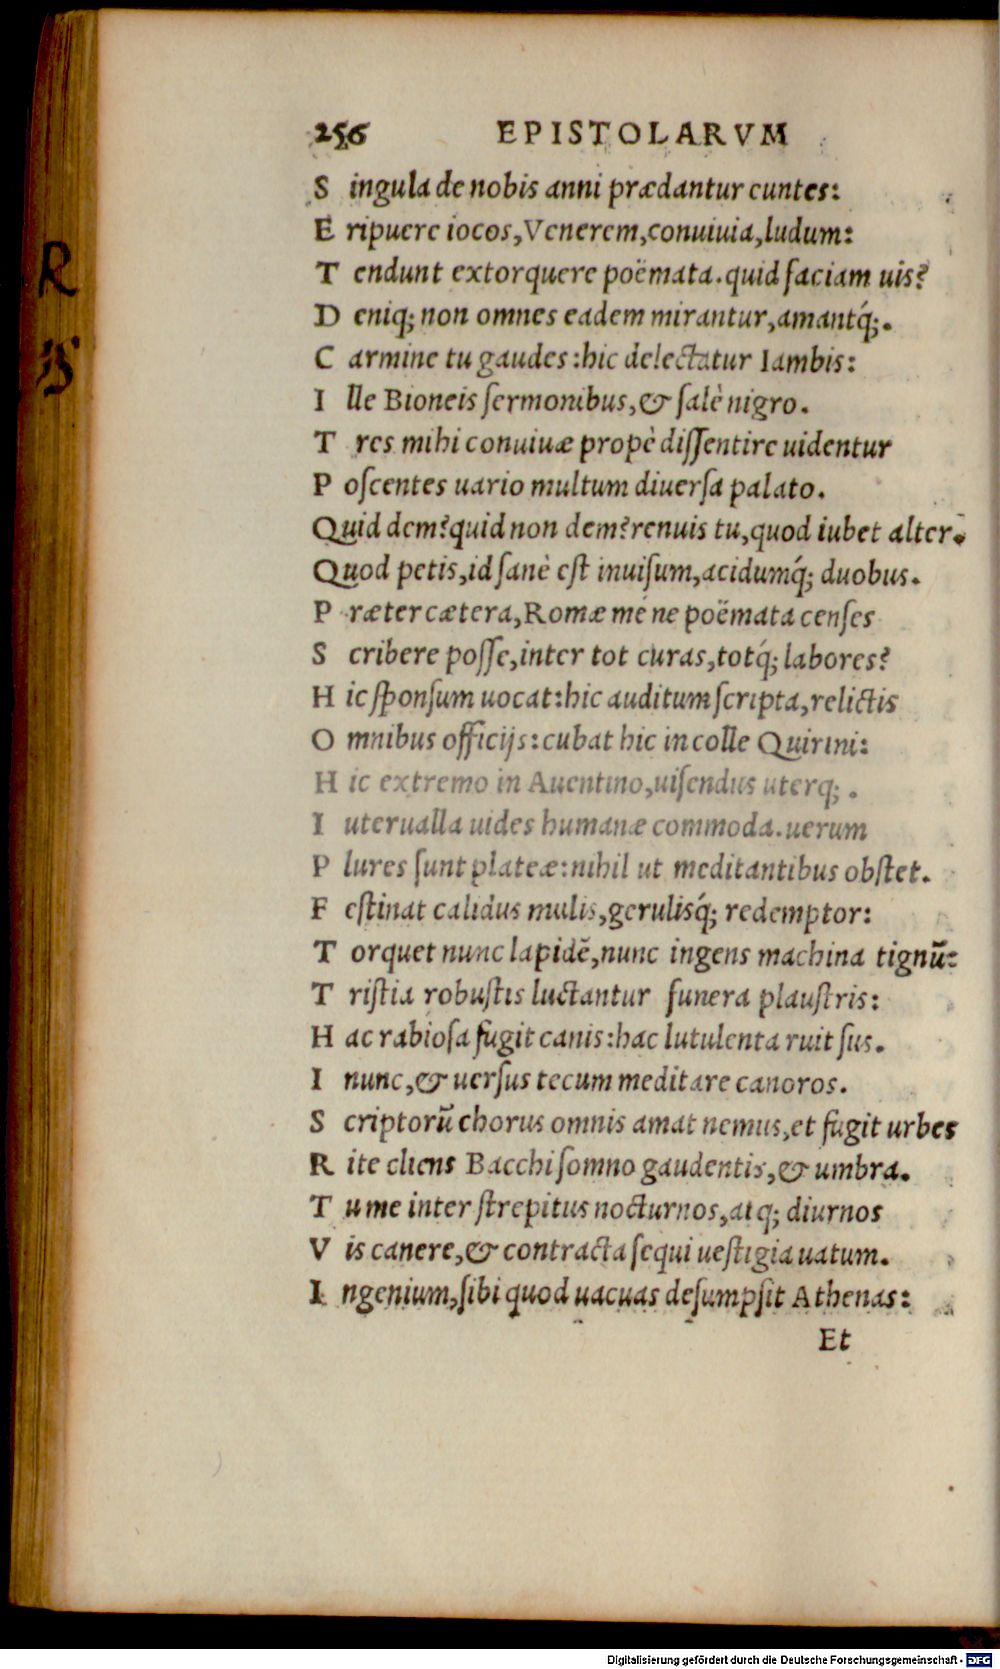 256 EPISTOLARVM
S ingula de nobis anni prædantur euntes:
E ripuere iocos, Venerem, conuiuia, ludum:
T endunt extorquere poëmata. quid faciam uis?
D eniq; non omnes eadem mirantur, amantq́;.
C armine tu gaudes: hic delectatur Iambis:
I lle Bioneis ſermonibus, & ſalè nigro.
T res mihi conuiuæ propè diſſentire uidentur
P oſcentes uario multum diuerſa palato.
Quid dem? quid non dem? renuis tu, quod iubet alter.
Quod petis, id ſanè eſt inuiſum, acidumq́; duobus.
P ræter cætera, Romæ mé ne poëmata cenſes
S cribere poſſe, inter tot curas, totq́; labores?
H ic ſponſum uocat: hic auditum ſcripta, relictis
O mnibus officijs: cubat hic in colle Quirini:
H ic extremo in Auentino, uiſendus uterq;.
I uterualla uides humanæ commoda. uerum
P lures ſunt plateæ: nihil ut meditantibus obſtet.
F eſtinat calidus mulis, gerulisq́; redemptor:
T orquet nunc lapidē, nunc ingens machina tignū:
T riſtia robuſtis luctantur funera plauſtris:
H ac rabioſa fugit canis: hac lutulenta ruit ſus.
I nunc, & uerſus tecum meditare canoros.
S criptorū chorus omnis amat nemus, et fugit urbes
R ite cliens Bacchi ſomno gaudentis, & umbra.
T u me inter ſtrepitus nocturnos, atq; diurnos
V is canere, & contracta ſequi ueſtigia uatum.
I ngenium, ſibi quod uacuas deſumpſit Athenas:
Et
R
Digitalisierung gefördert durch die Deutsche Forschungsgemeinschaft - DFG